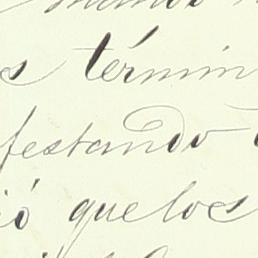 s términ
festando
ió que los